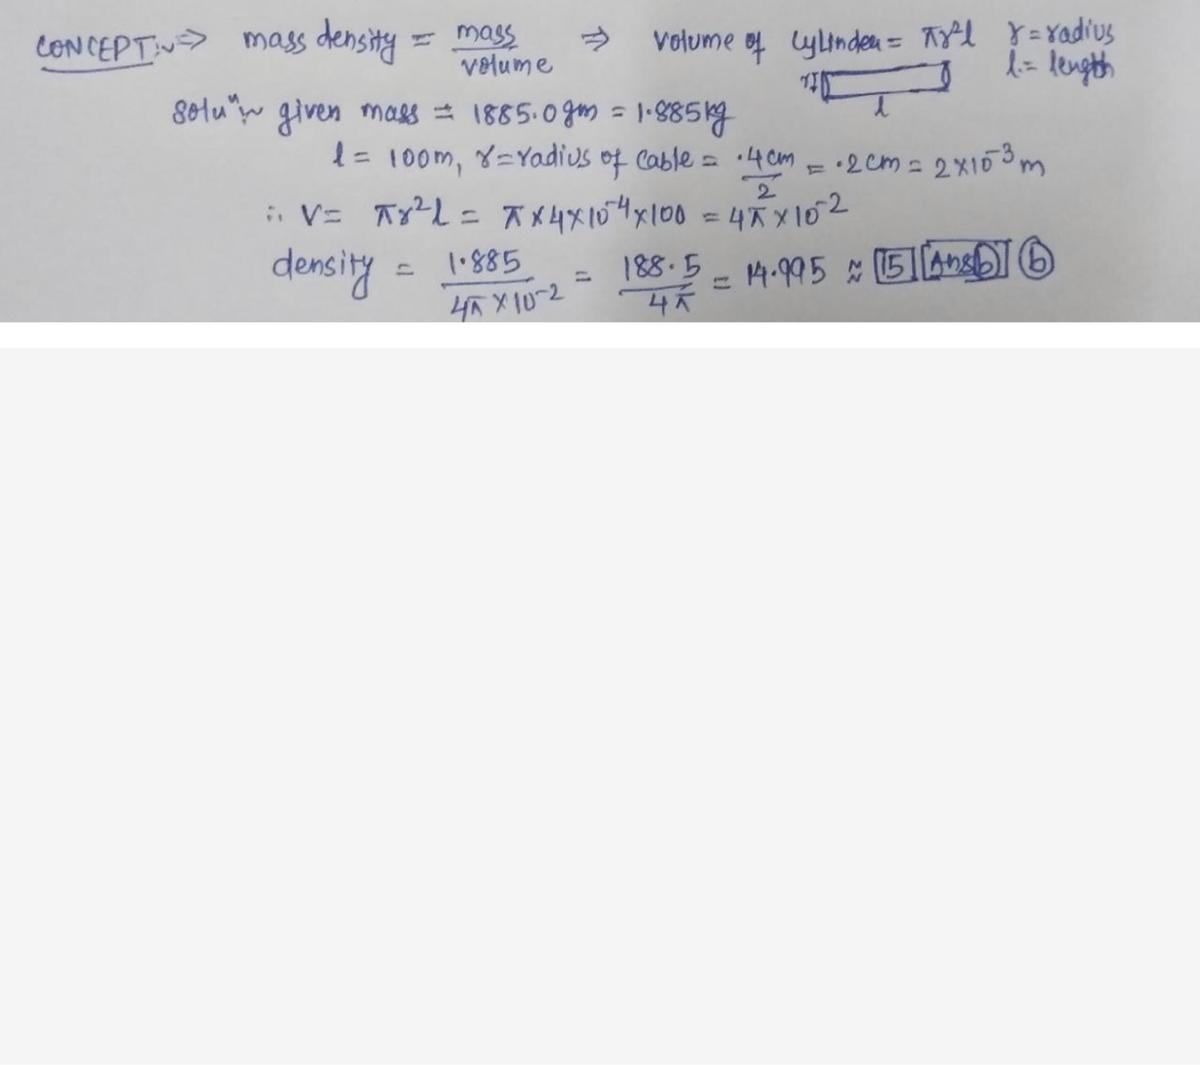 CONCEPT:~ => mass density = mass/volume => volume of Cylinder = πr²l r = radius
l = length
r l
Soluⁿ:~ given mass = 1885.0 gm = 1.885 kg
l = 100m, r = radius of cable = .4cm/2 = .2cm = 2×10⁻³ m
∴ V = πr²l = π×4×10⁻⁴×100 = 4π×10⁻²
density = 1.885/4π×10⁻² = 188.5/4π = 14.995 ≈ 15 Ans b b